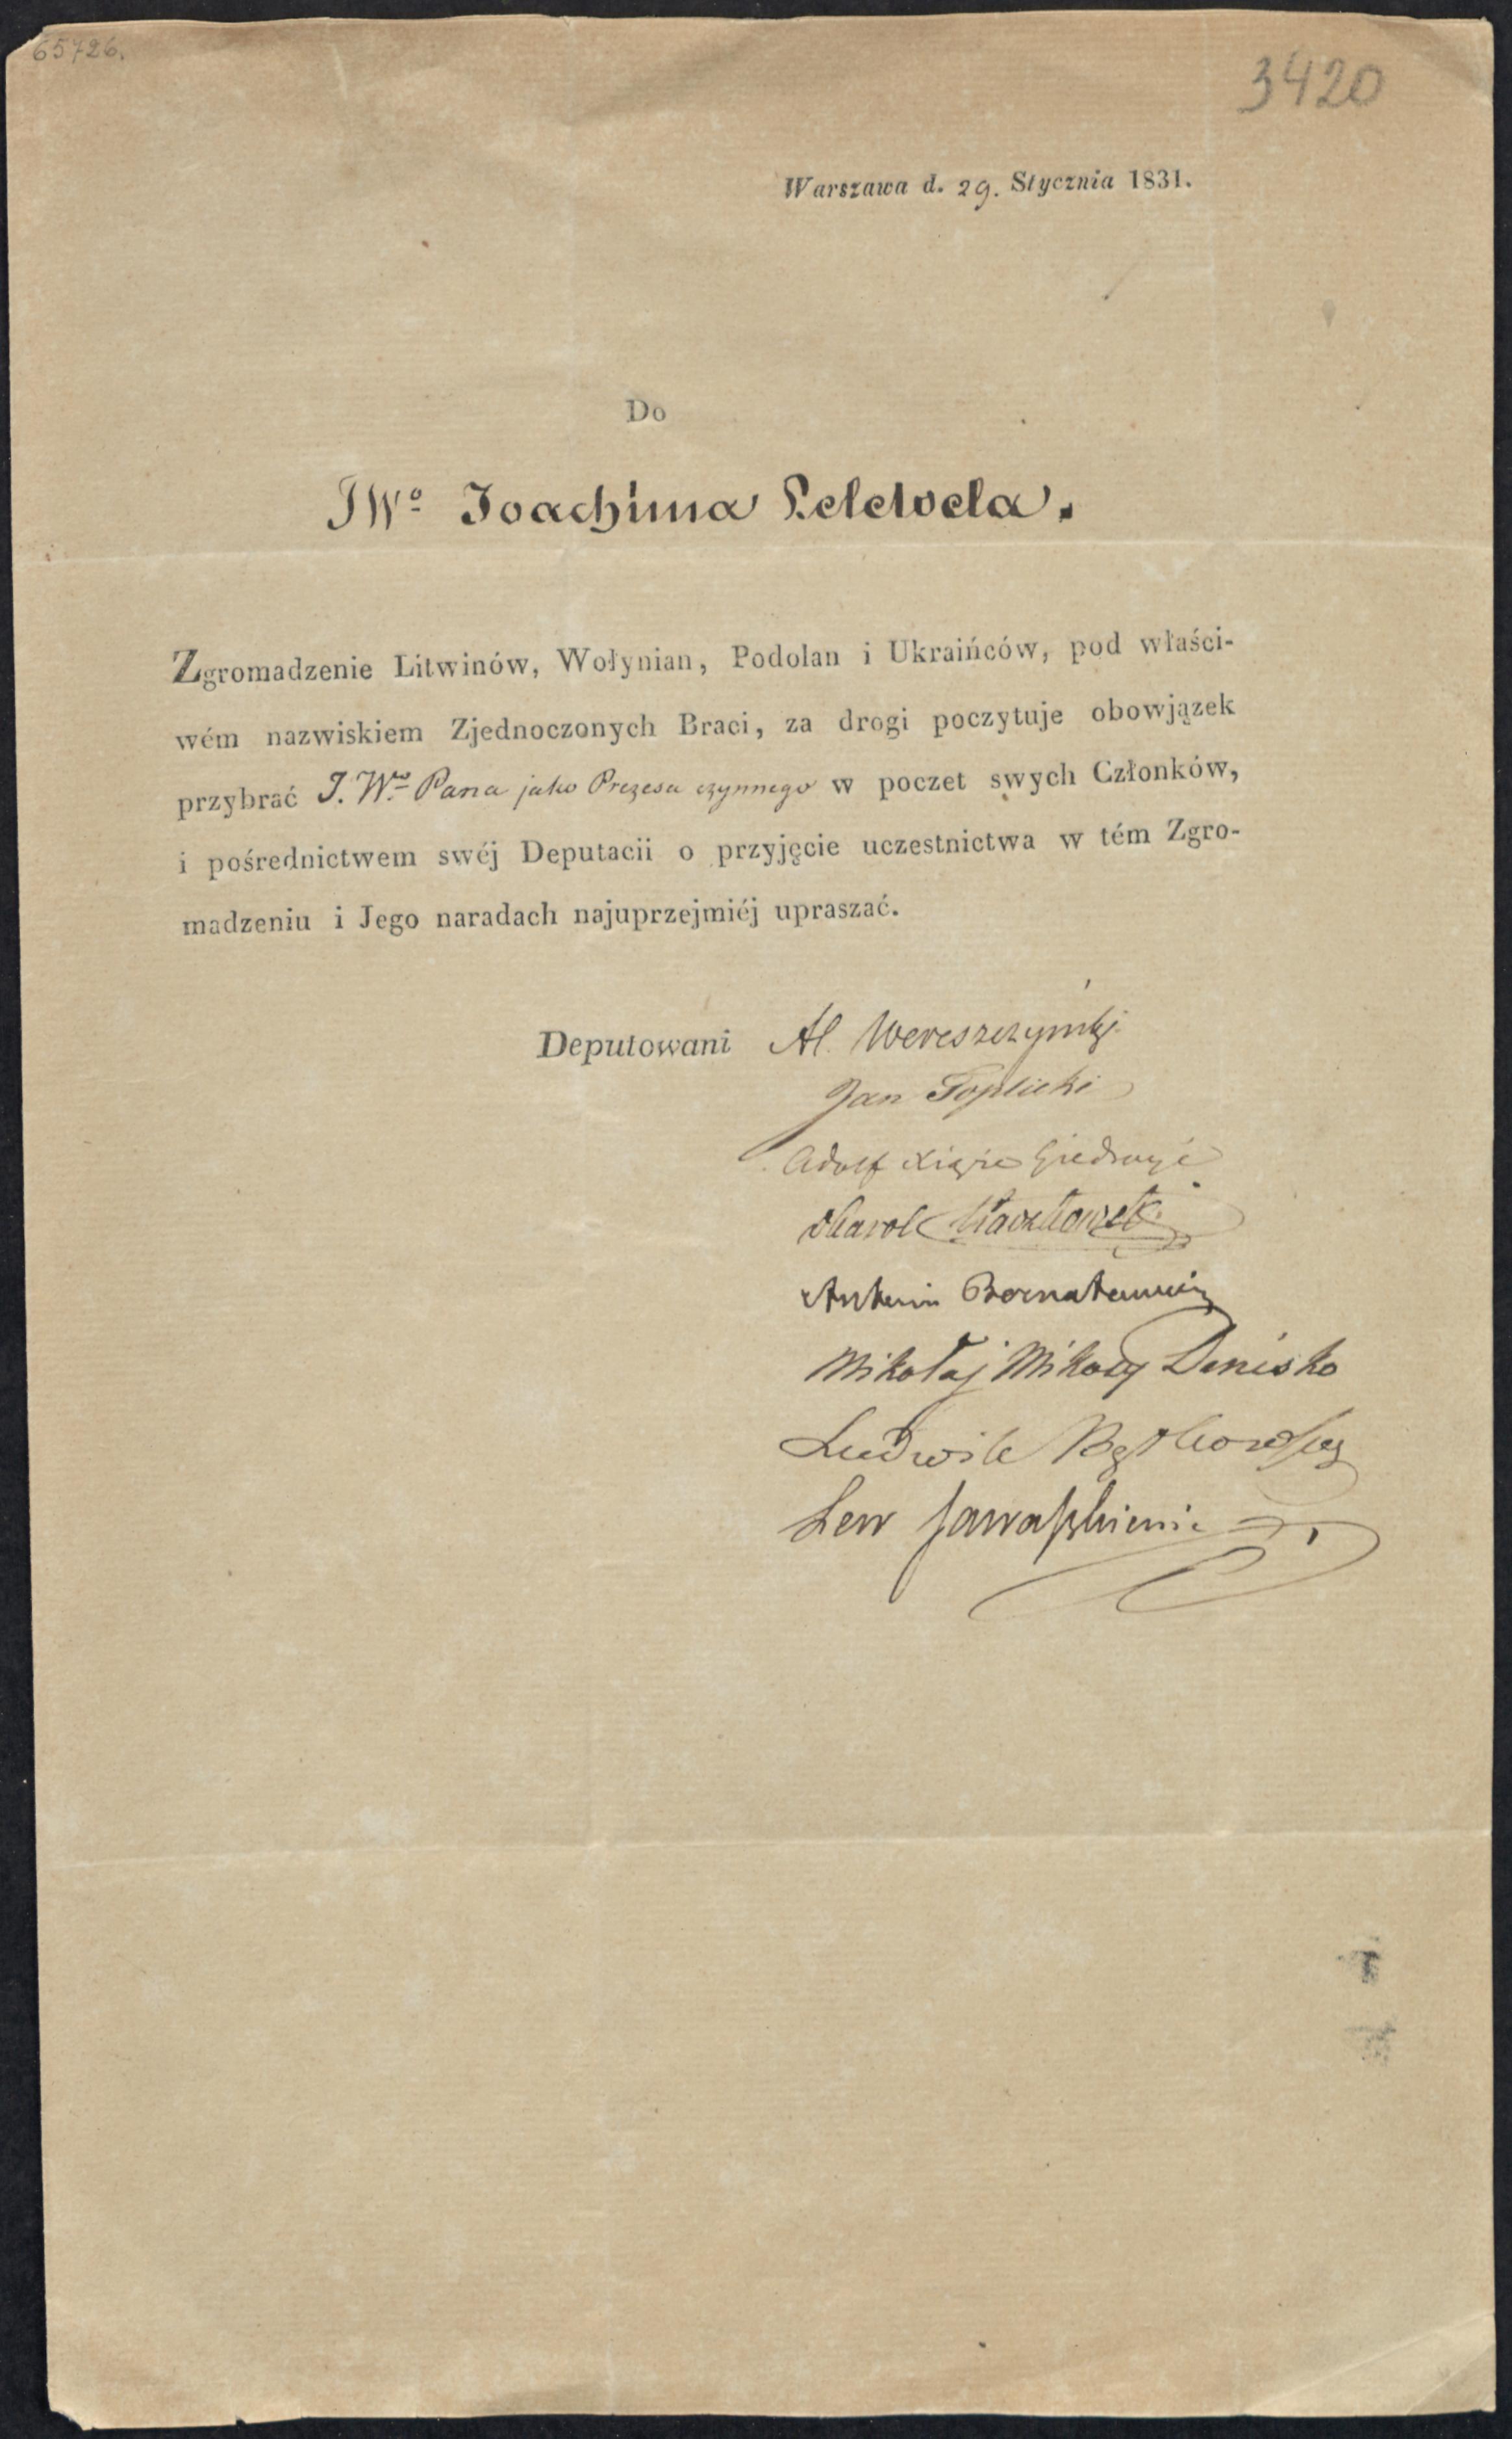 65726.
3420
Warszawa d. 29. Stycznia 1831.
Do
JWº Joachima Lelewela.
Zgromadzenie Litwinów, Wołynian, Podolan i Ukraińców, pod właści-
wém nazwiskiem Zjednoczonych Braci, za drogi poczytuje obowjązek
przybrać J. Wº Pana jako Prezesa czynnego w poczet swych Członków,
i pośrednictwem swéj Deputacii o przyjęcie uczestnictwa w tém Zgro-
madzeniu i Jego naradach najuprzejmiéj upraszać.
Deputowani Al. Wereszczyński
Jan Toplicki
Adolf Xiąże Giedroyć
Karol
Antoni
Mikołaj Mikosz Denisko
Ludwik
Lew